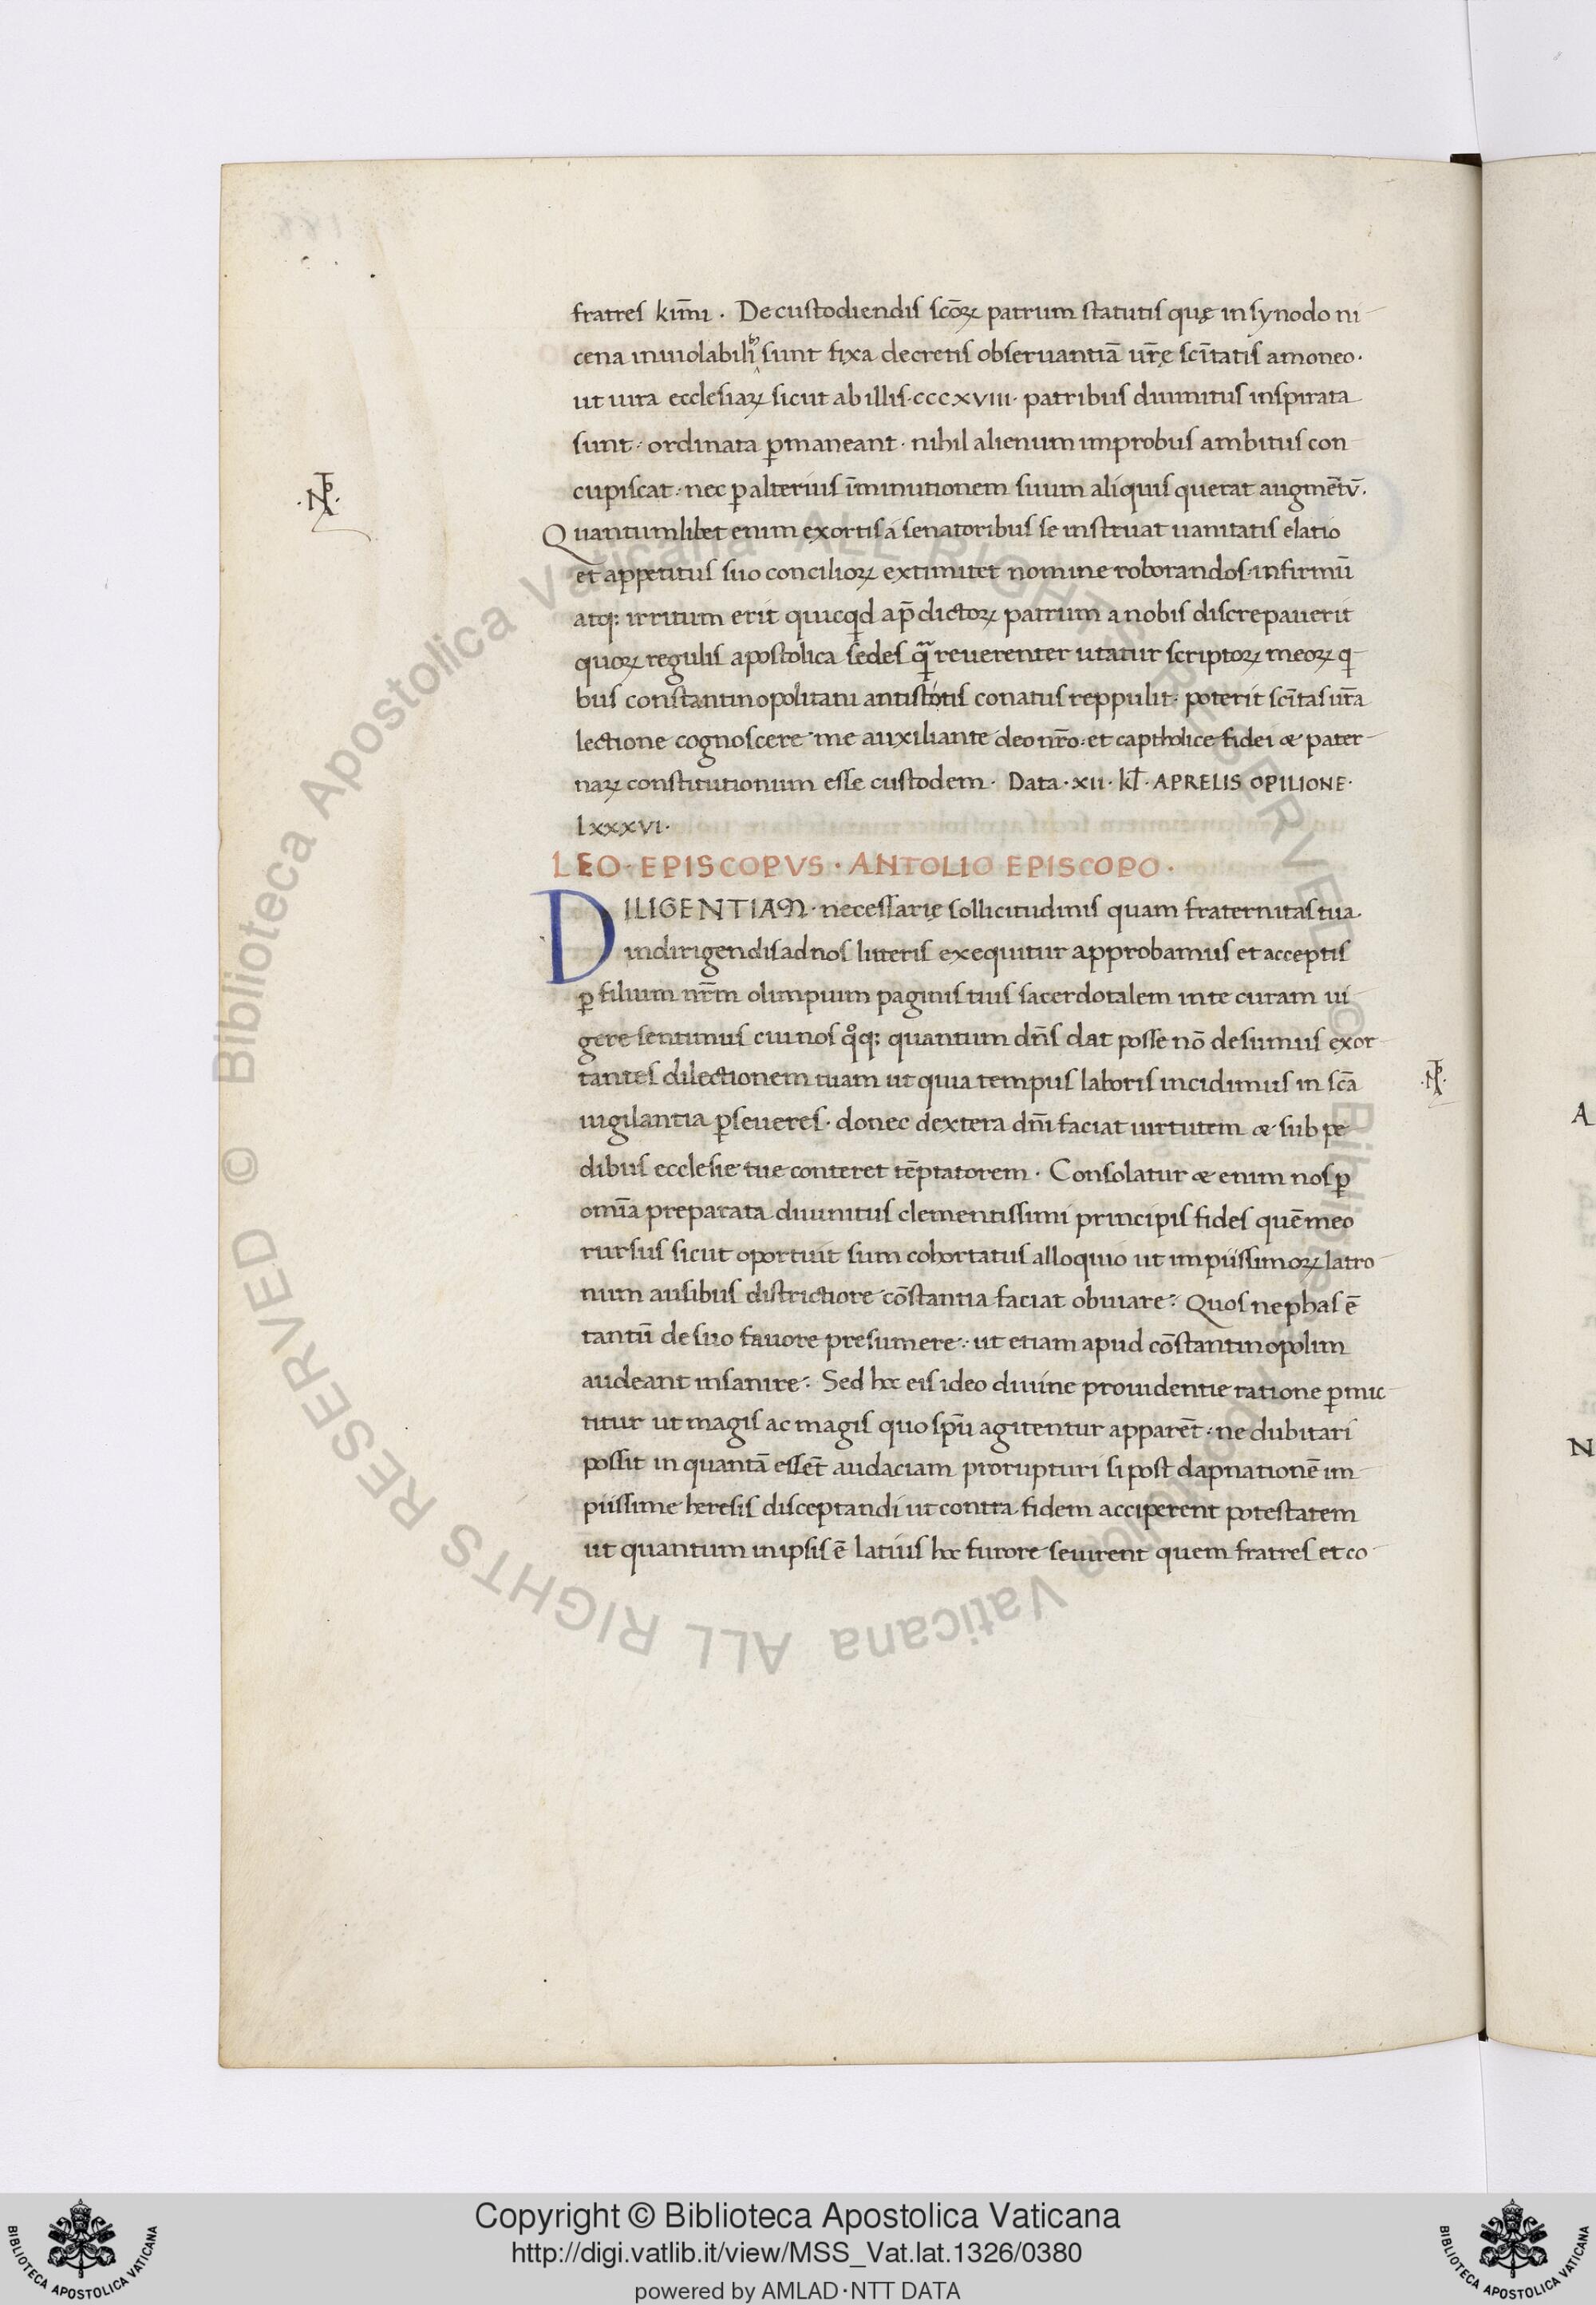 fratres kim̄i . De custodiendis scōꝝ patrum statutis quę in synodo ni-
cena inuiolabilib; sunt fixa decretis obseruantiā ur̄ę scītatis amoneo.
ut iura ecclesiaꝝ sicut ab illis · cccxviii · patribus diuinitus inspirata
sunt · ordinata ꝑmaneant · nihil alienum improbus ambitus con-
cupiscat · nec ꝑ alterius īminutionem suum aliquis querat augmētū.
Quantumlibet enim exortis á senatoribus se instruat uanitatis elatio
et appetitus suo conciliоꝝ extimitet nomine roborandos · infirmū
atq; irritum erit quicqd a p̄dictoꝝ patrum a nobis discrepauerit
quoꝝ regulis apostolica sedes q̄ reuerenter utatur scriptoꝝ meoꝝ q-
bus constantinopolitani antistótis conatus reppulit · poterit scītas ur̄a
lectione cognoscere me auxiliante deo nr̄o · et captholice fidei æ pater-
naꝝ constitutionum esse custodem · Data · xii · kl̄ · APRELIS OPILIONE ·
lxxxvi ·
LEO · EPISCOPVS · ANTOLIO EPISCOPO ·
DILIGENTIAM · necessarię sollicitudinis quam fraternitas tua
in dirigendis ad nos litteris exequitur approbamus et acceptis
ꝑ filium nr̄m olimpium paginis tuis sacerdotalem in te curam ui-
gere sentimus cui nos qͦq; quantum dn̄s dat posse nō desumus exor-
tantes dilectionem tuam ut quia tempus laboris incidimus in scā
uigilantia ꝑseueres · donec dextera dn̄i faciat uirtutem æ sub pe-
dibus ecclesie tue conteret tēptatorem · Consolatur æ enim nos ꝑ
omīa preparata diuinitus clementissimi principis fides quē meo
rursus sicut oportuit sum cohortatus alloquio ut impiissimoꝝ latro-
num ausibus districtiore cōstantia faciat obuiare : Quos nephas ē
tantū de suo fauore presumere : ut etiam apud cōstantinopolim
audeant insanire · Sed hoc eis ideo diuine prouidentie ratione ꝑmic-
titur ut magis ac magis quo sp̄u agitentur apparēt · ne dubitari
possit in quantā essēt audaciam prorupturi si post dapnationē im-
piissime heresis disceptandi ut contra fidem acciperent potestatem
ut quantum in ipsis ē latius hoc furore seuirent quem fratres et co-
A
N
Copyright © Biblioteca Apostolica Vaticana
http://digi.vatlib.it/view/MSS_Vat.lat.1326/0380
powered by AMLAD·NTT DATA
BIBLIOTECA APOSTOLICA VATICANA
BIBLIOTECA APOSTOLICA VATICANA
© Biblioteca Apostolica Vaticana ALL RIGHTS RESERVED © Biblioteca Apostolica Vaticana ALL RIGHTS RESERVED